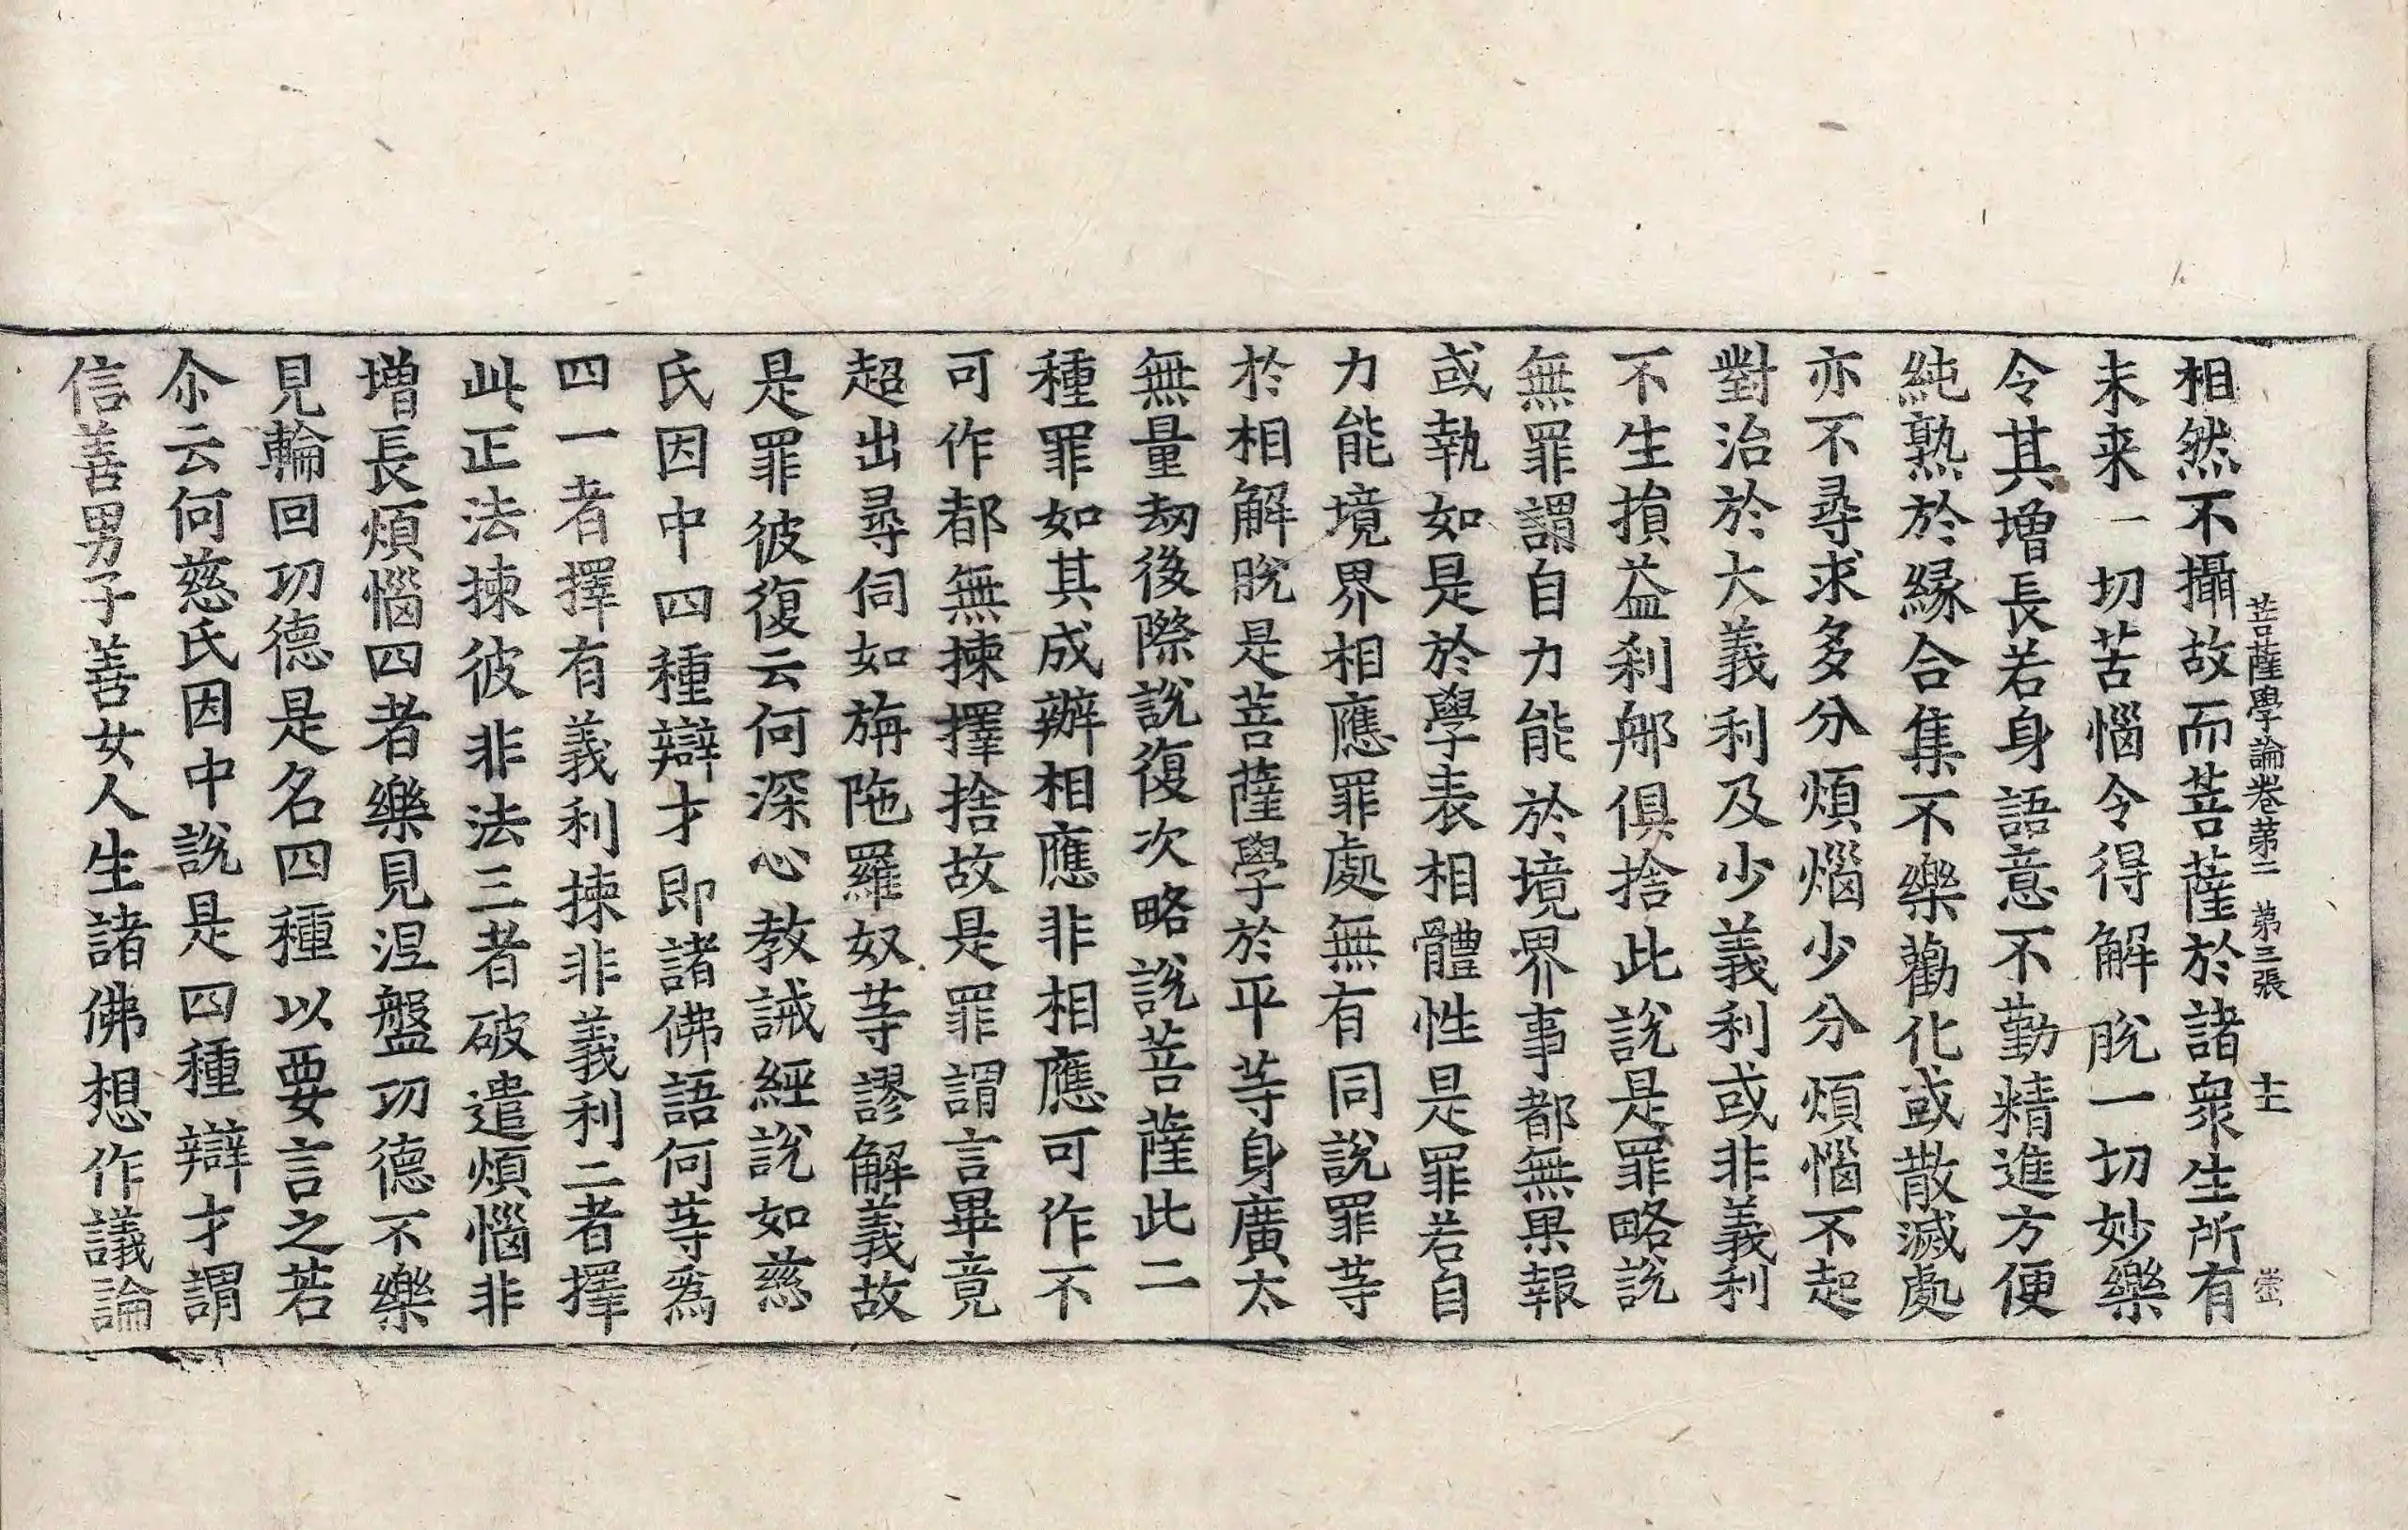 菩薩學論卷第二　第三張　士
相然不攝故而菩薩於諸衆生所有
未来一切苦惱令得解脫一切妙樂
令其增長若身語意不勤精進方便
純熟於緣合集不樂勸化或散滅處
亦不尋求多分煩惱少分煩惱不起
對治於大義利及少義利或非義利
不生損益刹那俱捨此說是罪略說
無罪謂自力能於境界事都無果報
或執如是於學表相體性是罪若自
力能境界相應罪處無有同說罪等
於相解脫是菩薩學於平等身廣太
無量劫後際說復次略說菩薩此二
種罪如其成辦相應非相應可作不
可作都無揀擇捨故是罪謂言畢竟
超出尋伺如旃陁羅奴等謬解義故
是罪彼復云何深心教誡經說如慈
氏因中四種辯才即諸佛語何等爲
四一者擇有義利揀非義利二者擇
此正法揀彼非法三者破遣煩惱非
增長煩惱四者樂見涅盤功德不樂
見輪回功德是名四種以要言之若
尒云何慈氏因中說是四種辯才謂
信善男子善女人生諸佛想作議論